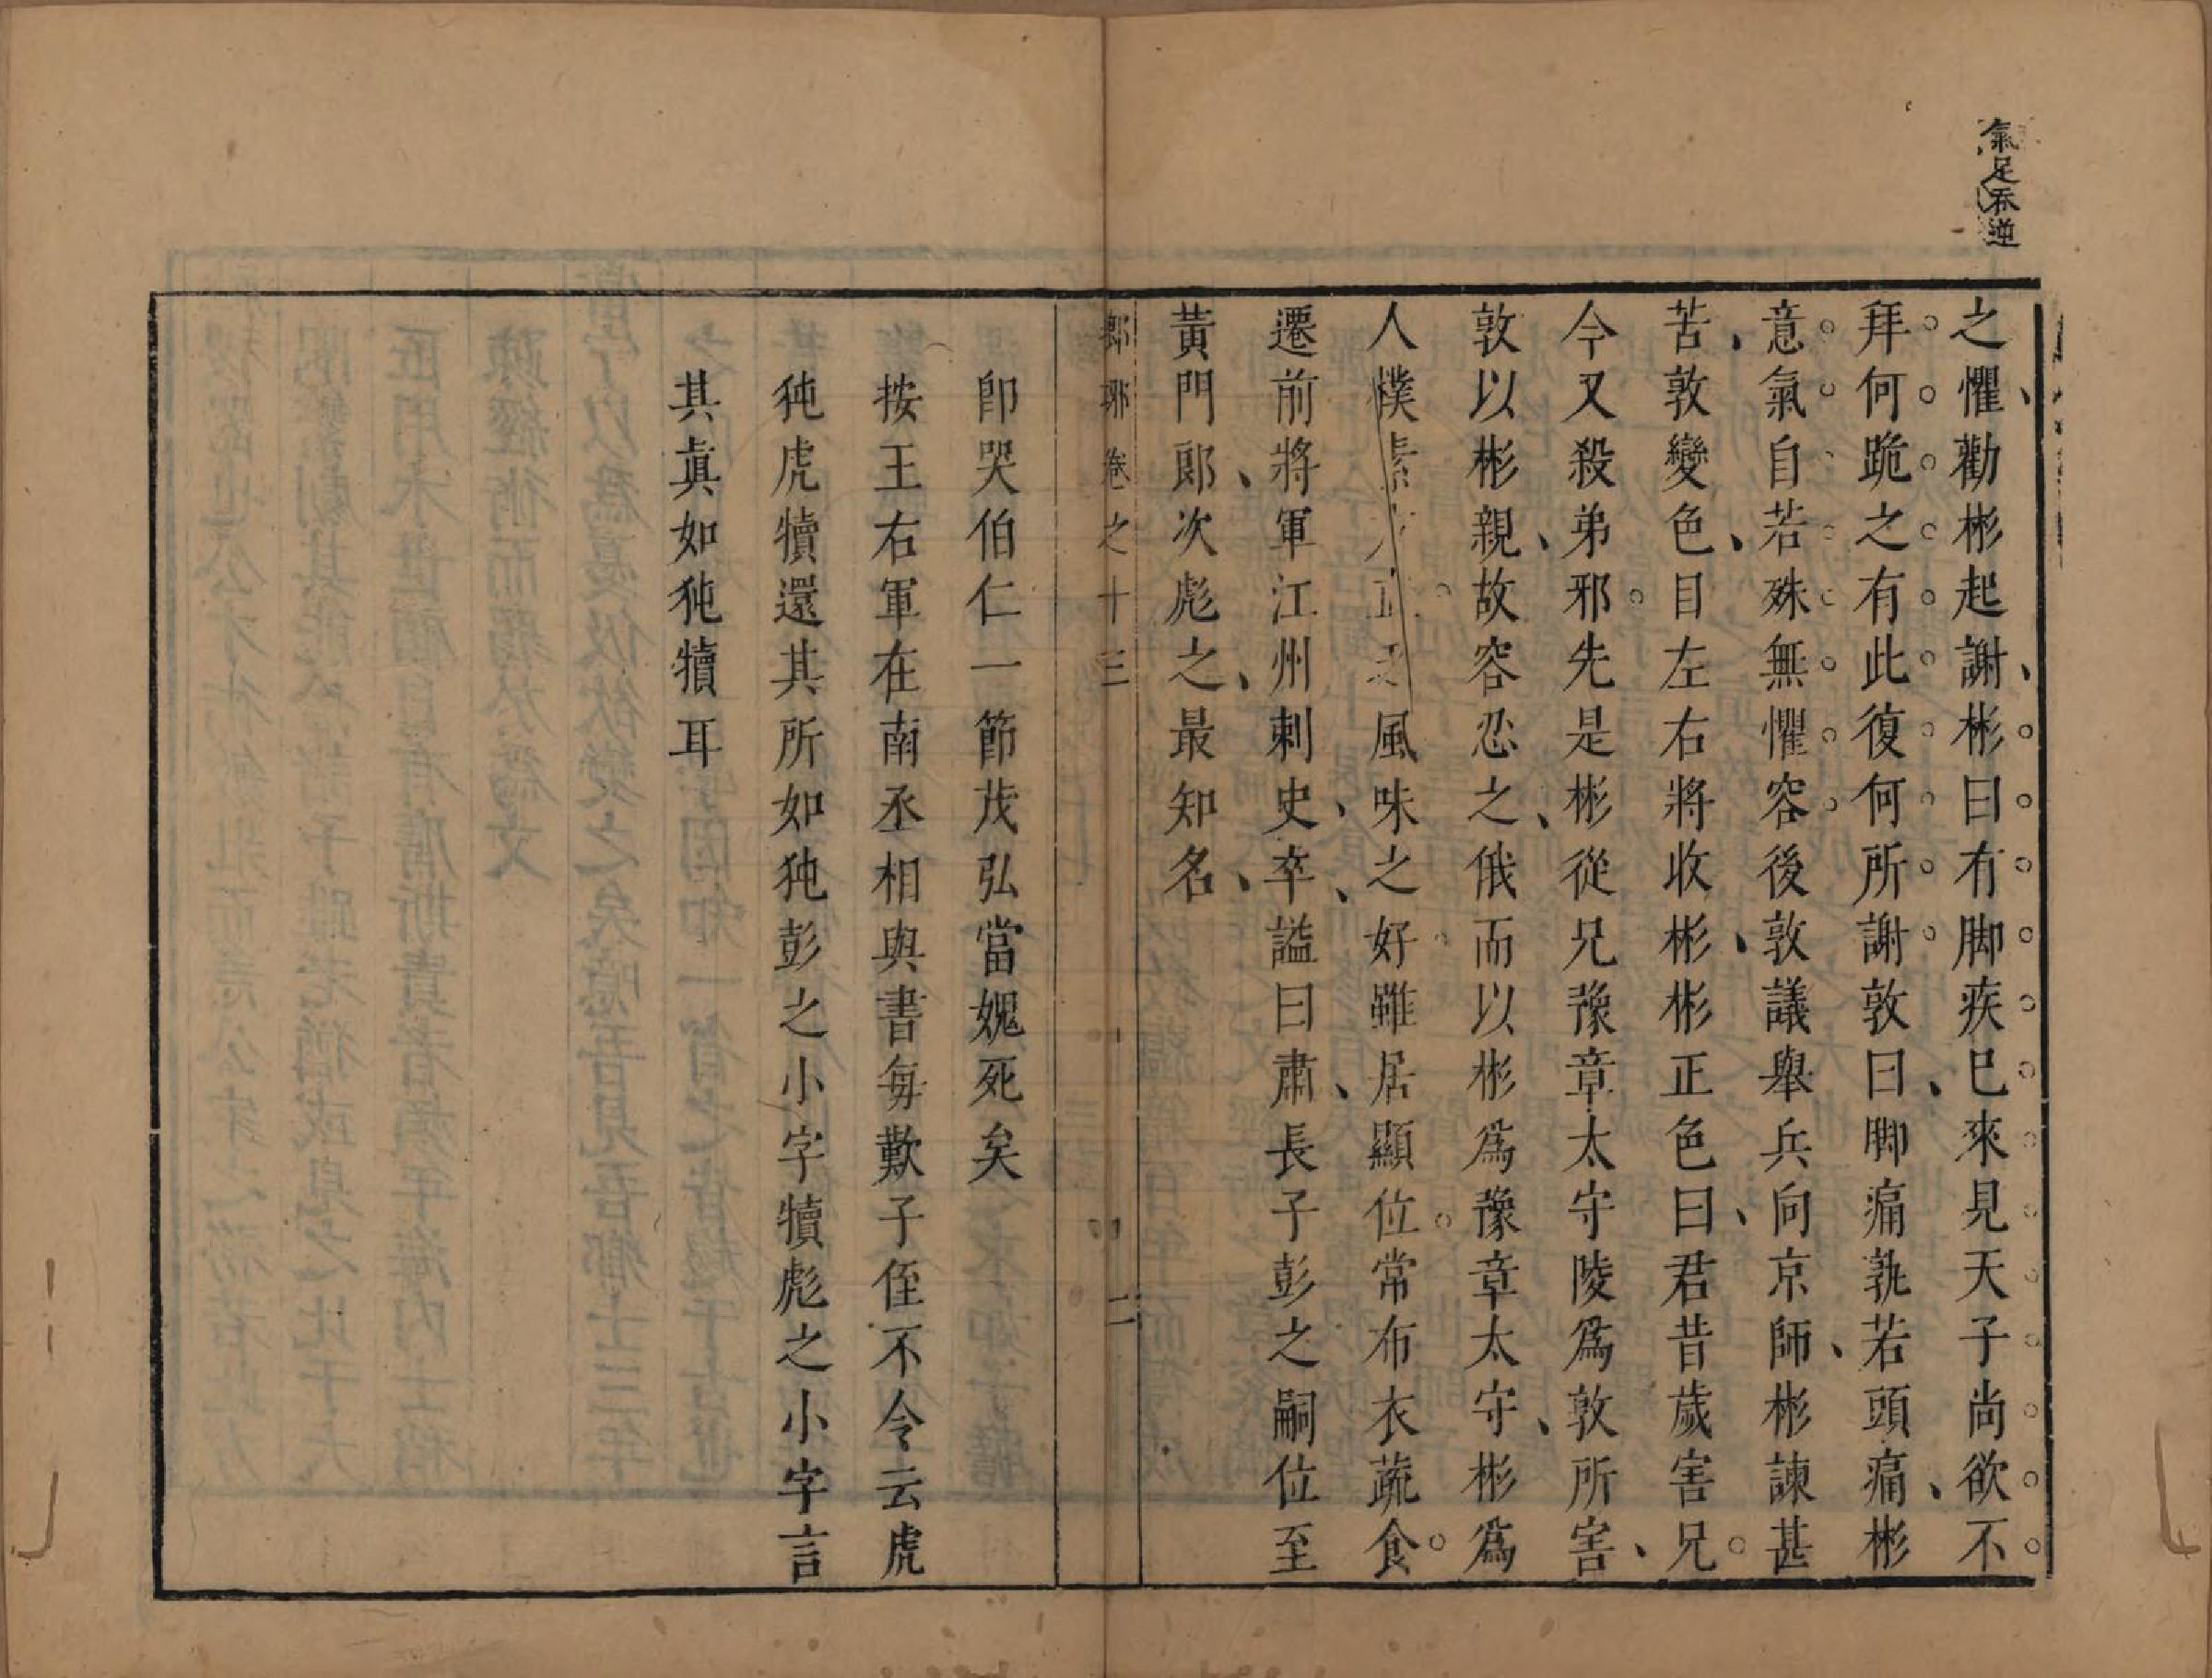 氣足吞逆
之懼、勸彬起謝、彬曰有脚疾已來見天子尚欲不
拜何跪之有此復何所謝敦曰、脚痛孰若頭痛、彬
意氣自若殊無懼容後敦議舉兵向京師、彬諫甚
苦、敦變色、目左右將收彬、彬正色曰、君昔歲害兄。
今又殺弟邪。先是彬從兄豫章太守陵爲敦所害、
敦以彬親、故容忍之、俄而以彬爲豫章太守、彬爲
人樸素方正。風味之好。雖居顯位。常布衣蔬食。
遷前將軍江州刺史、卒、謚曰肅、長子彭之嗣位至
黃門郎、次彪之、最知名、
郷琊卷之十三 二
卽哭伯仁一節茂弘當媿死矣
按王右軍在南丞相與書每歎子侄不令云虎
㹠虎犢還其所如㹠彭之小字犢彪之小字言
其眞如㹠犢耳